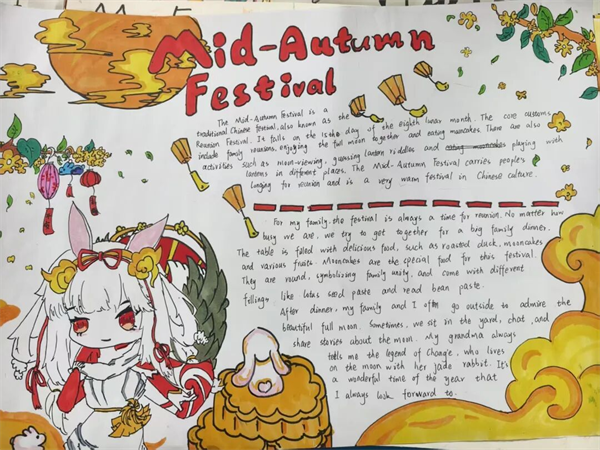 Mid-Autumn
Festival
The Mid-Autumn Festival is a
traditional Chinese festival, also known as the
Reunion Festival. It falls on the 15th day of the eighth lunar month. The core customs
include family reunions, enjoying the full moon together and eating mooncakes. There are also
activities such as moon-viewing, guessing lantern riddles and playing with
lanterns in different places. The Mid-Autumn Festival carries people's
longing for reunion and is a very warm festival in Chinese culture.
For my family, the festival is always a time for reunion. No matter how
busy we are, we try to get together for a big family dinner.
The table is filled with delicious food, such as roasted duck, mooncakes
and various fruits. Mooncakes are the special food for this festival.
They are round, symbolizing family unity, and come with different
fillings like lotus seed paste and read bean paste.
After dinner, my family and I often go outside to admire the
beautiful full moon. Sometimes, we sit in the yard, chat, and
share stories about the moon. My grandma always
tells me the legend of Chang'e, who lives
on the moon with her jade rabbit. It's
a wonderful time of the year that
I always look forward to.